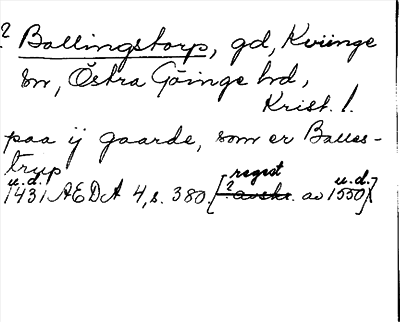 ? Ballingstorp, gd, Kviinge
sn, Östra Göinge hd,
Krist. l.
paa ij gaarde, som er Balles-
trup
u.d. regest u.d.
1431 AEDA 4, s. 380. [? avskr. av 1550]